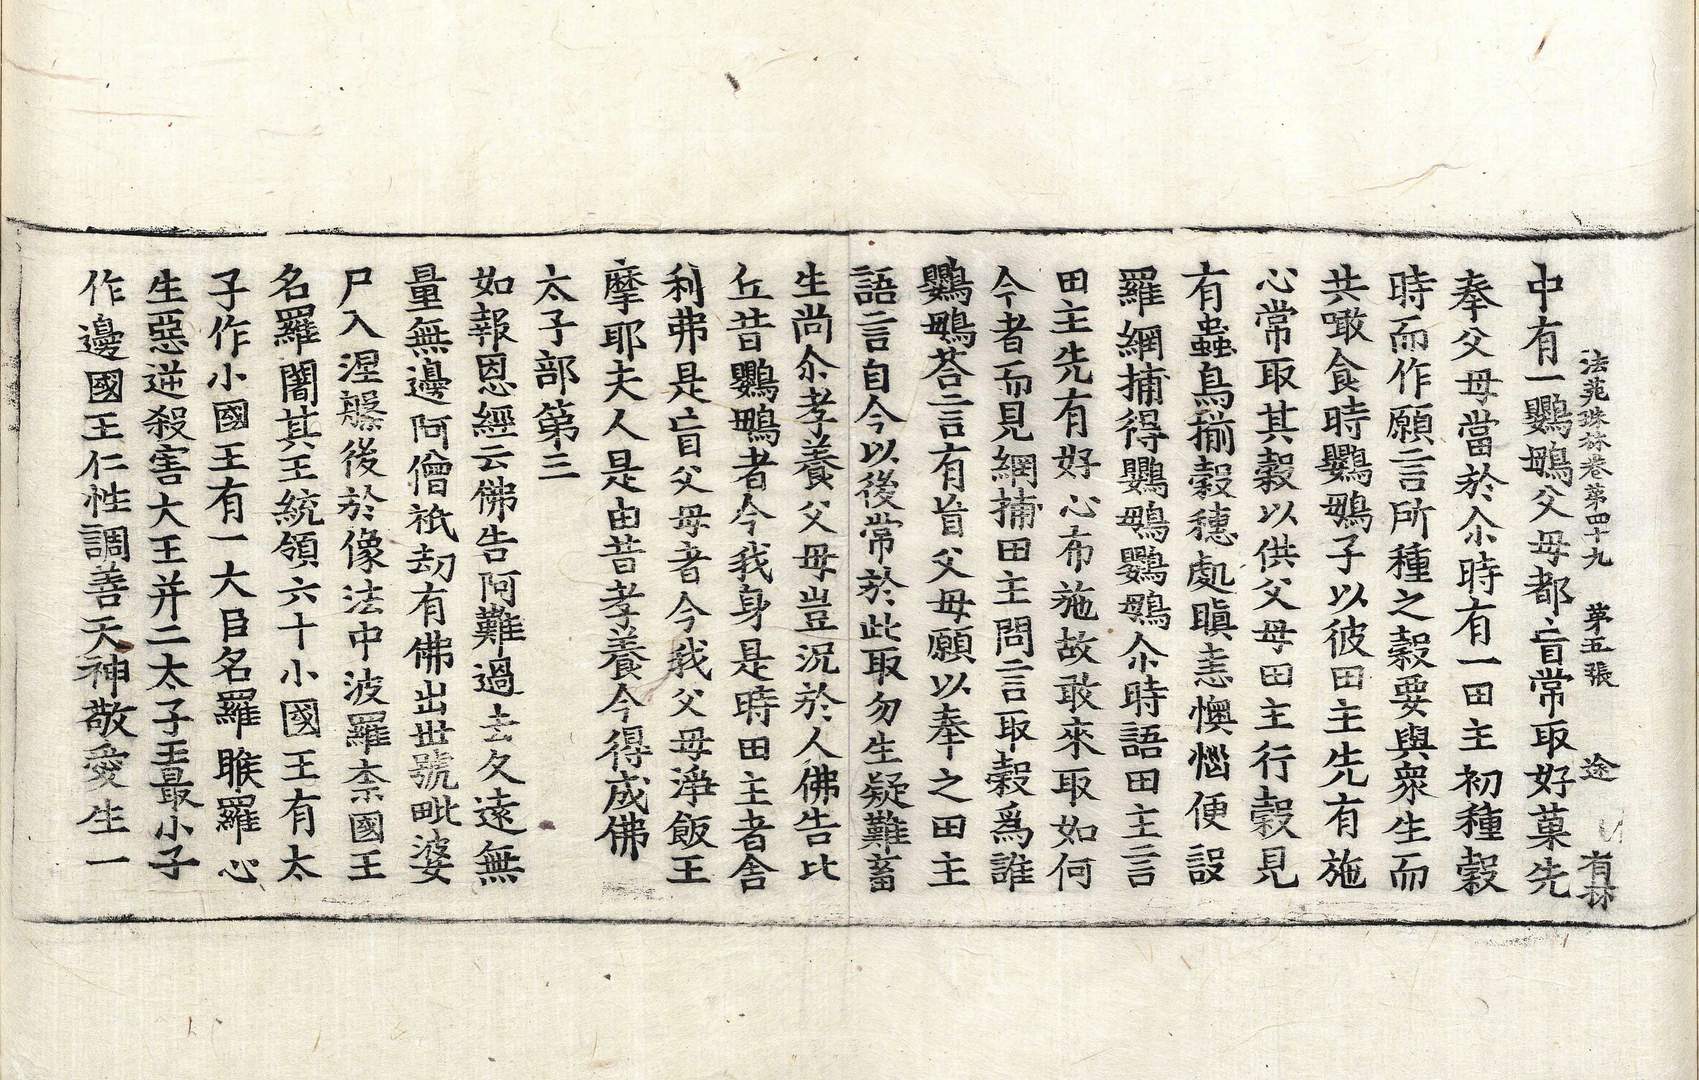 法苑珠林卷第四十九 第五張 途 有林
中有一鸚鵡父母都盲常取好菓先
奉父母當於尒時有一田主初種穀
時而作願言所種之穀要與衆生而
共噉食時鸚鵡子以彼田主先有施
心常取其穀以供父母田主行穀見
有蟲鳥揃穀穗處瞋恚懊惱便設
羅網捕得鸚鵡鸚鵡尒時語田主言
田主先有好心布施故敢來取如何
今者而見網捕田主問言取穀爲誰
鸚鵡荅言有盲父母願以奉之田主
語言自今以後常於此取勿生疑難畜
生尚尒孝養父母豈況於人佛告比
丘昔鸚鵡者今我身是時田主者舍
利弗是盲父母者今我父母淨飯王
摩耶夫人是由昔孝養今得成佛
太子部第三
如報恩經云佛告阿難過去久遠無
量無邊阿僧祇劫有佛出世號毗婆
尸入涅槃後於像法中波羅柰國王
名羅闍其王統領六十小國王有太
子作小國王有一大臣名羅睺羅心
生惡逆殺害大王并二太子王最小子
作邊國王仁性調善天神敬愛生一